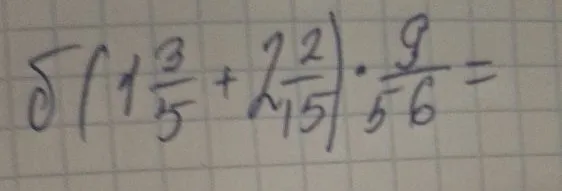 б(1 3/5 + 2 2/15) · 9/56 =